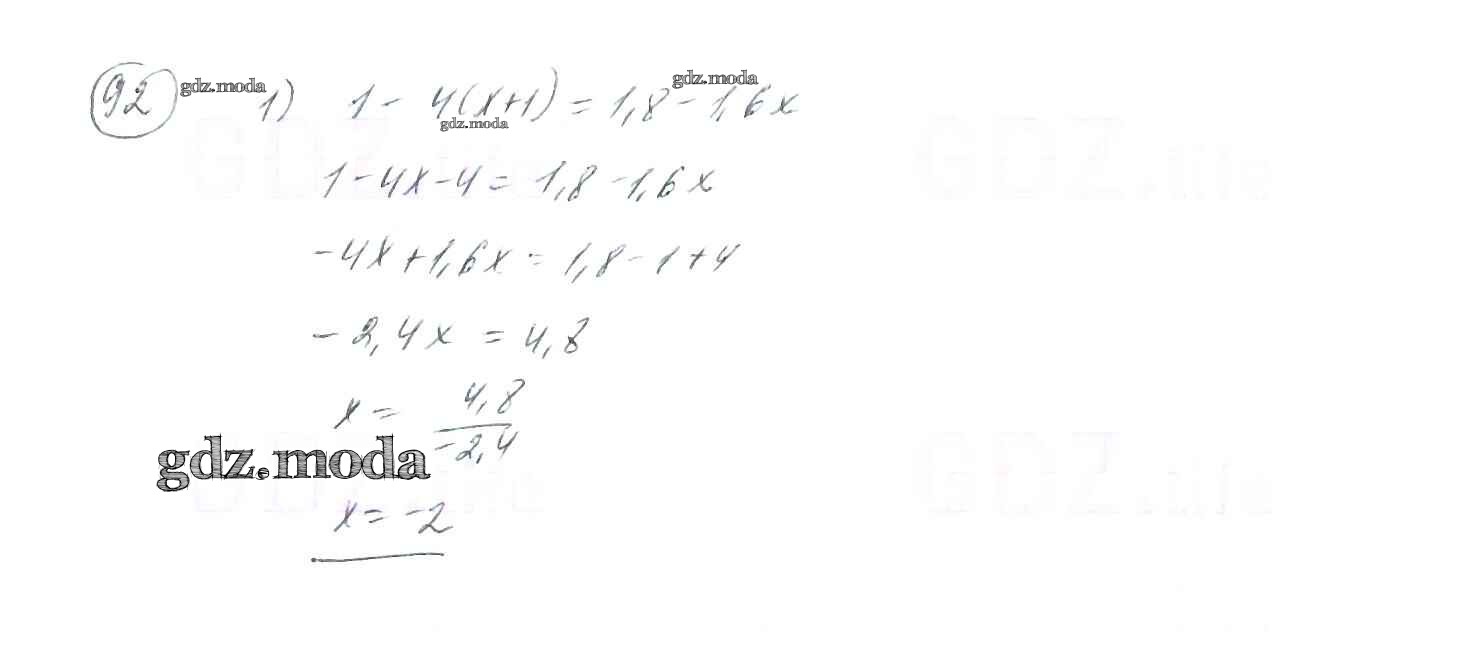 92 gdz.moda 1) 1 - 4(x+1) = 1,8 - 1,6x gdz.moda
gdz.moda
GDZ.life GDZ.life
1 - 4x - 4 = 1,8 - 1,6x
-4x + 1,6x = 1,8 - 1 + 4
-2,4x = 4,8
x = 4,8
-2,4
gdz.moda
GDZ.life GDZ.life
x = -2